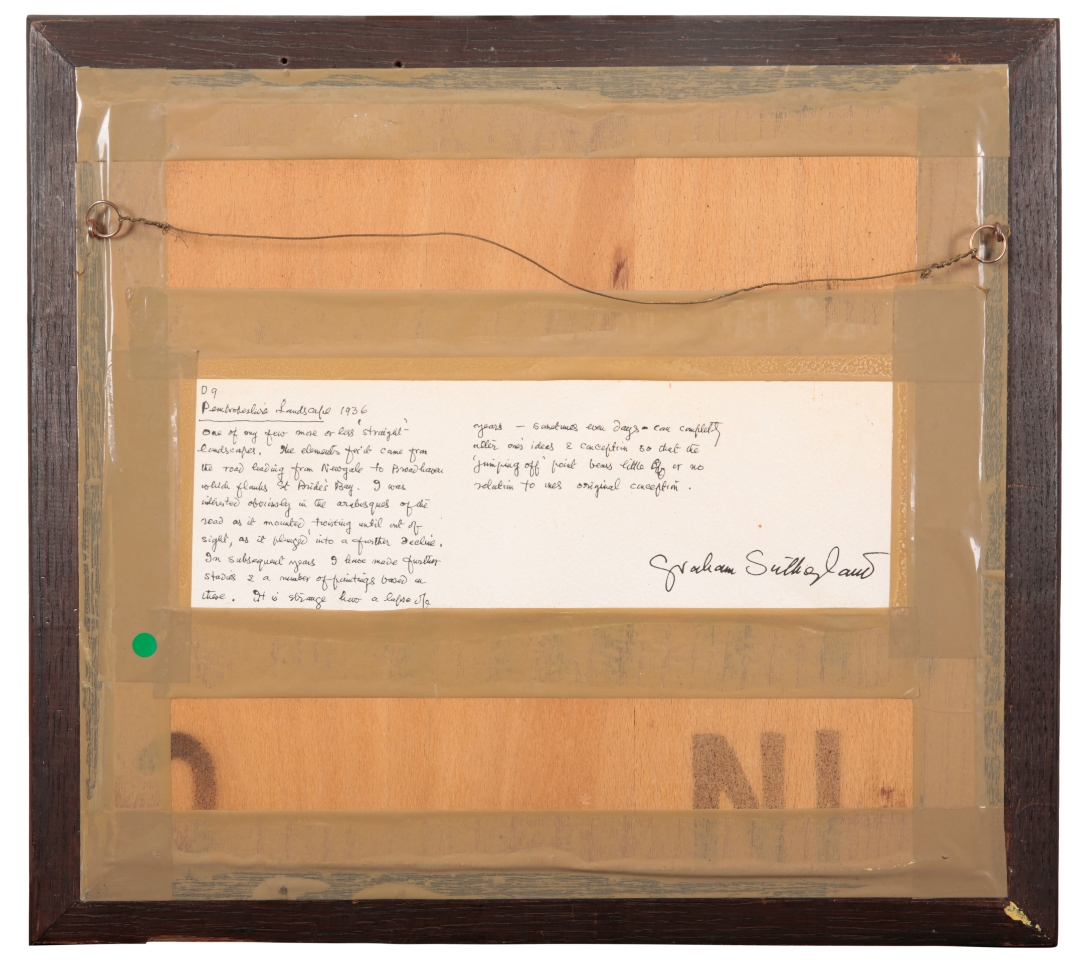 D9
Pembrokeshire Landscape 1936
One of my few more or less 'straight'
landscapes. The elements for it came from
the road leading from Newgale to Broadhaven
which flanks St Bride's Bay. I was
interested obviously in the arabesques of the
road as it mounted, twisting until out of
sight, as it plunged into a further decline.
In subsequent years I have made further
studies & a number of paintings based on
these. It is strange how a lapse of
years – sometimes even days – can completely
alter one's ideas & conception so that the
'jumping off' point bears little or no
relation to ones original conception.
Graham Sutherland
NI